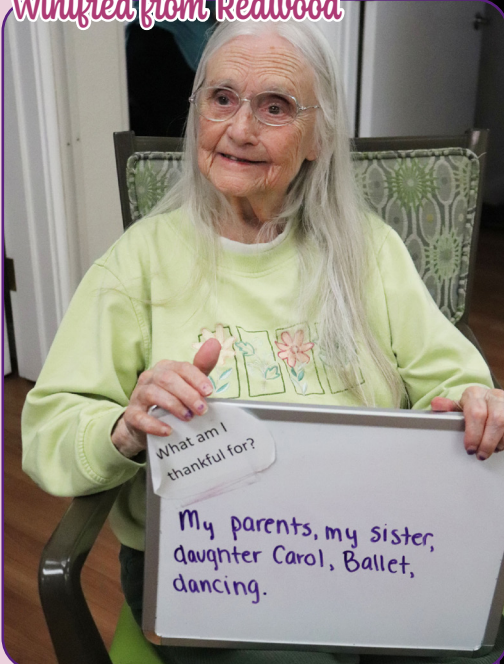 Winifred from Redwood
What am I
thankful for?
My parents, my sister,
daughter Carol, Ballet,
dancing.